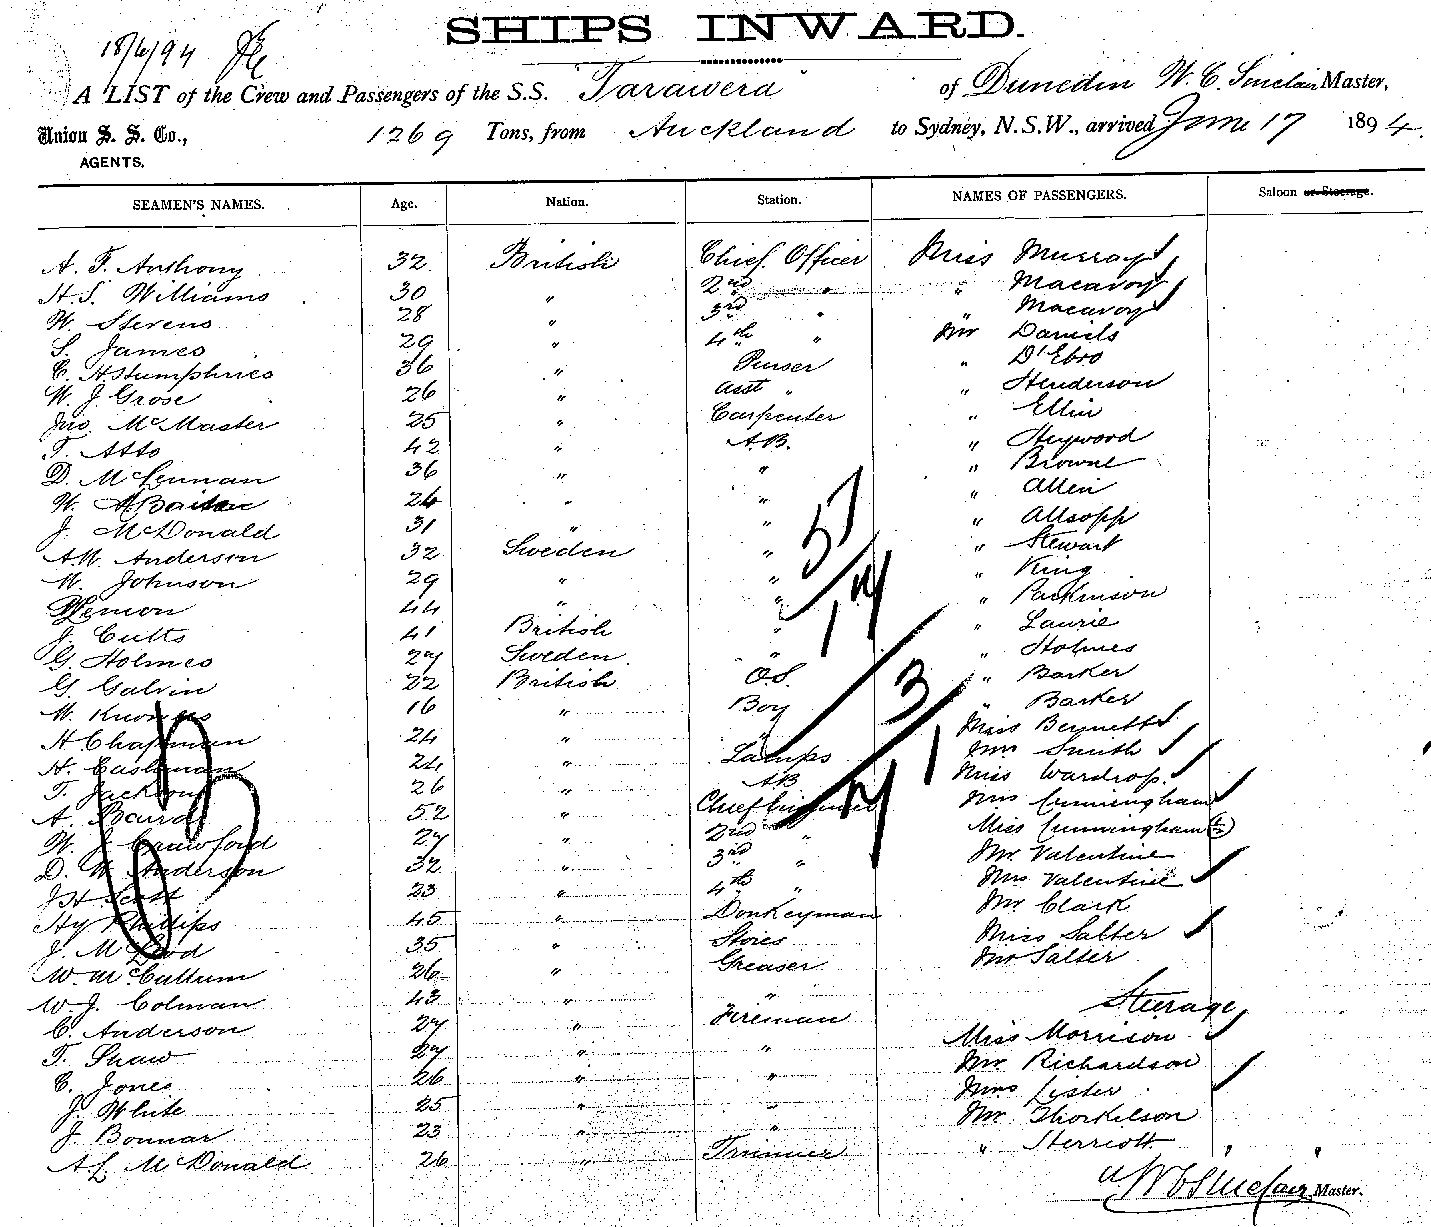 SHIPS INWARD.
18/6/94
A LIST of the Crew and Passengers of the S.S. Tarawera of Dunedin W. C. Sinclair Master,
Union S. S. Co., 1269 Tons, from Auckland to Sydney, N.S.W., arrived June 17 1894.
AGENTS.
SEAMEN'S NAMES. Age. Nation. Station. NAMES OF PASSENGERS. Saloon or Steerage.
A. T. Anthony 32 British Chief Officer Miss Murray
H. S. Williams 30 " 2nd " " Macavoy
W. Stevens 28 " 3rd " " Macavoy
S. James 29 " 4th " Mr Daniels
C. Humphries 36 " Purser " D'Ebro
W. J. Grose 26 " Asst " " Henderson
Jno. McMaster 25 " Carpenter " Ellin
T. Atto 42 " A.B. " Heyword
D. McLennan 36 " " " Browne
W. 24 " " " Allen
J. McDonald 31 " " " Allsopp
A.W. Anderson 32 Sweden " " Stewart
W. Johnson 29 " " " King
44 " " " Parkinson
J. Cutts 41 British " " Laurie
G. Holmes 27 Sweden " " Holmes
G. Galvin 22 British O.S. " Barker
W. 16 " Boy " Barker
H Chapman 24 " " Miss Bennett
H. Cashman 24 " Lamps Mrs Smith
T. Jackson 26 " AB Miss Wardrop.
A. Baird 52 " Chief Engineer Mrs Cunningham
W. J. Crawford 27 " 2nd " Miss Cunningham (½)
D. W. Anderson 32 " 3rd " Mr Valentine
J H Scott 23 " 4th " Mrs Valentine
Hy Phillips 45 " Donkeyman Mr Clark
J. McLeod 35 " Stores Miss Salter
W. McCullum 26 " Greaser Mr Salter
W. J. Colman 43 " " Steerage
C. Anderson 27 " Fireman Miss Morrison
T. Shaw 27 " " Mr Richardson
C. Jones 26 " " Mrs Lyster
J. White 25 " " Mr Thorkilson
J. Bonnar 23 " " " Herriott
A L McDonald 26 " Trimmer
W C Sinclair Master.